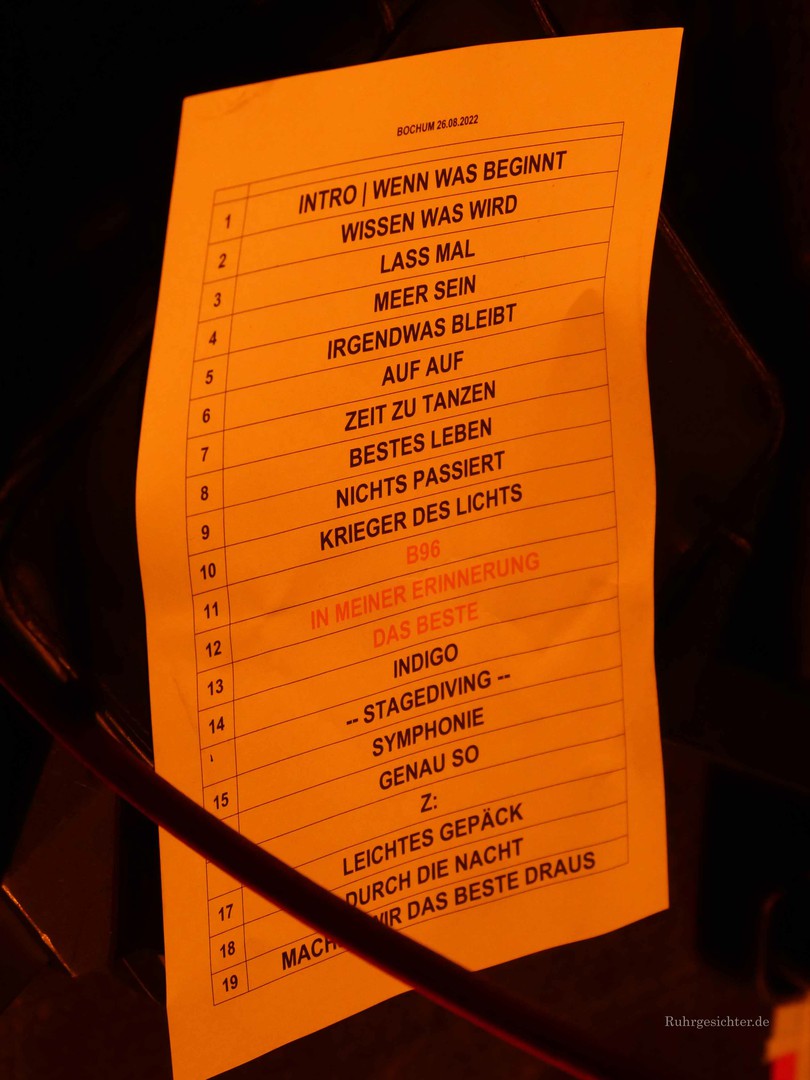 BOCHUM 26.08.2022
1 INTRO | WENN WAS BEGINNT
2 WISSEN WAS WIRD
3 LASS MAL
4 MEER SEIN
5 IRGENDWAS BLEIBT
6 AUF AUF
7 ZEIT ZU TANZEN
8 BESTES LEBEN
9 NICHTS PASSIERT
10 KRIEGER DES LICHTS
11 B96
12 IN MEINER ERINNERUNG
13 DAS BESTE
14 INDIGO
-- STAGEDIVING --
15 SYMPHONIE
GENAU SO
Z:
17 LEICHTES GEPÄCK
18 DURCH DIE NACHT
19 WIR DAS BESTE DRAUS
Ruhrgesichter.de